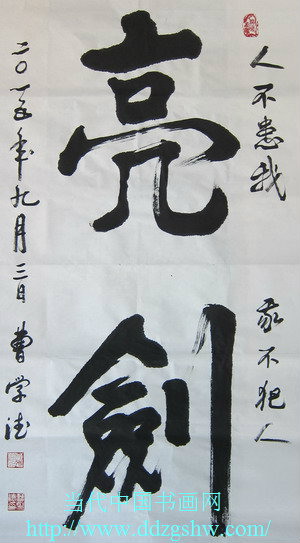 人不惹我
我不犯人
亮剑
二〇一五年九月三日 曹学德
当代中国书画网
http://www.ddzgshw.com/